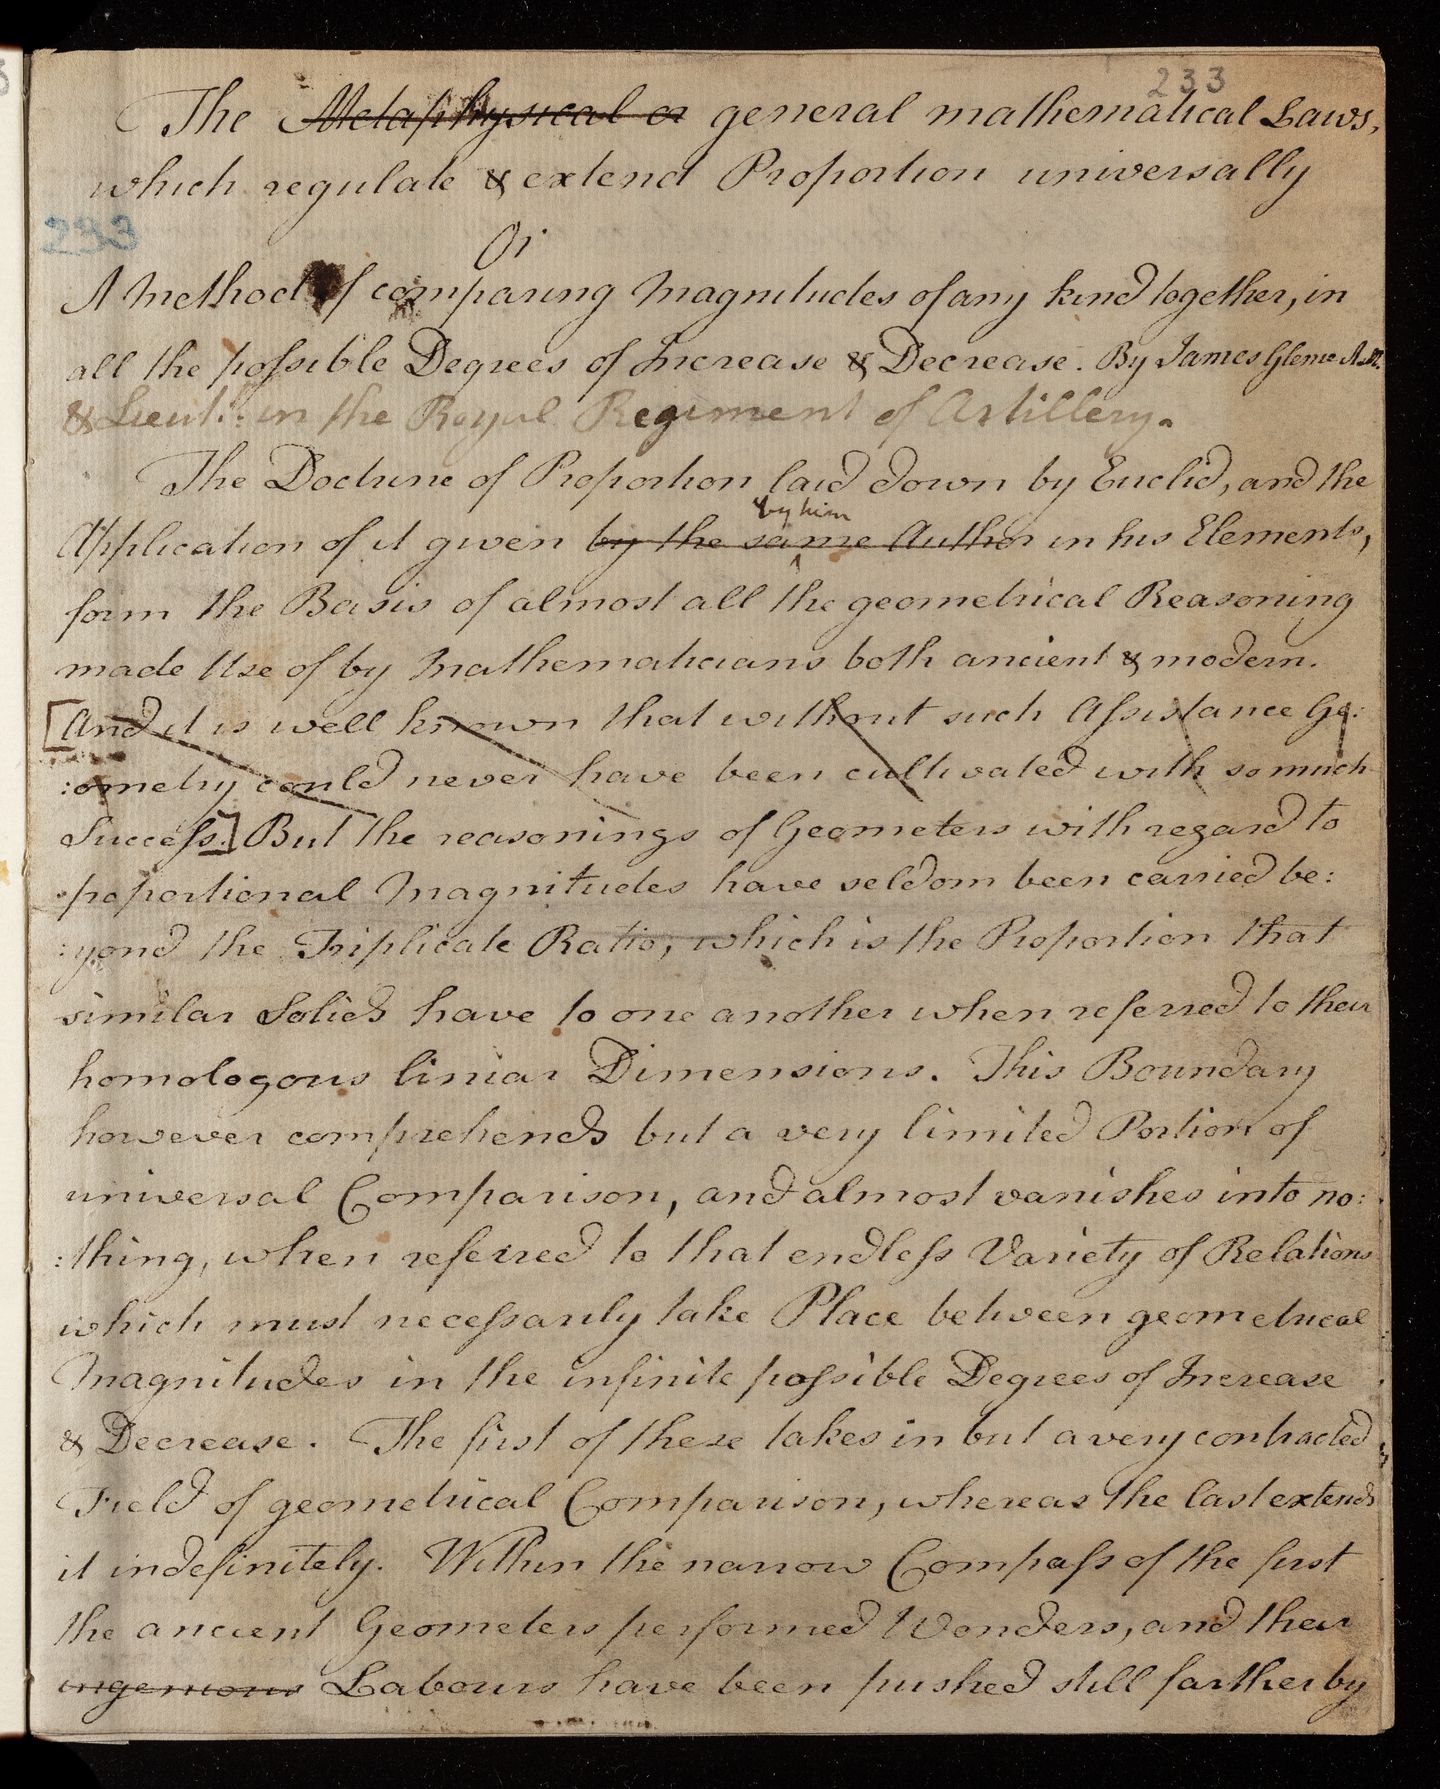 233
The Metaphysical or general mathematical Laws,
which regulate & extend Proportion universally
233
Or
A Method of comparing Magnitudes of any kind together, in
all the possible Degrees of Increase & Decrease. By James Glenie A.M.
& Lieut.: in the Royal Regiment of Artillery.
The Doctrine of Proportion laid down by Euclid, and the
by him
Application of it given by the same Author in his Elements,
form the Basis of almost all the geometrical Reasoning
made Use of by Mathematicians both ancient & modern.
[And it is well known that without such Assistance Ge:
:ometry could never have been cultivated with so much
Success.] But the reasonings of Geometers with regard to
proportional Magnitudes have seldom been carried be:
:yond the Triplicate Ratio, which is the Proportion that
similar Solids have to one another when referred to their
homologous liniar Dimensions. This Boundary
however comprehends but a very limited Portion of
universal Comparison, and almost vanishes into no:
:thing, when referred to that endless Variety of Relations
which must necessarily take Place between geometrical
Magnitudes in the infinite possible Degrees of Increase
& Decrease. The first of these takes in but a very contracted
Field of geometrical Comparison, whereas the last extends
it indefinitely. Within the narrow Compass of the first
the ancient Geometers performed Wonders, and their
ingenious Labours have been pushed still farther by